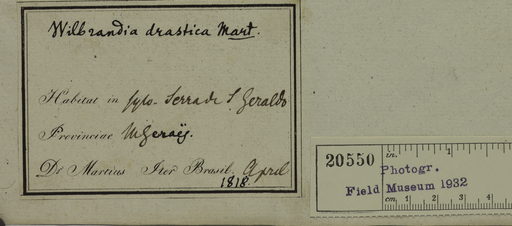 Wilbrandia drastica Mart.
Habitat in sylv. Serra de S. Geraldo
Provinciae MGeraës.
Dr Martius Iter Brasil. April
1818.
20550
in. 1
Photogr.
Field Museum 1932
cm. 1 2 3 4